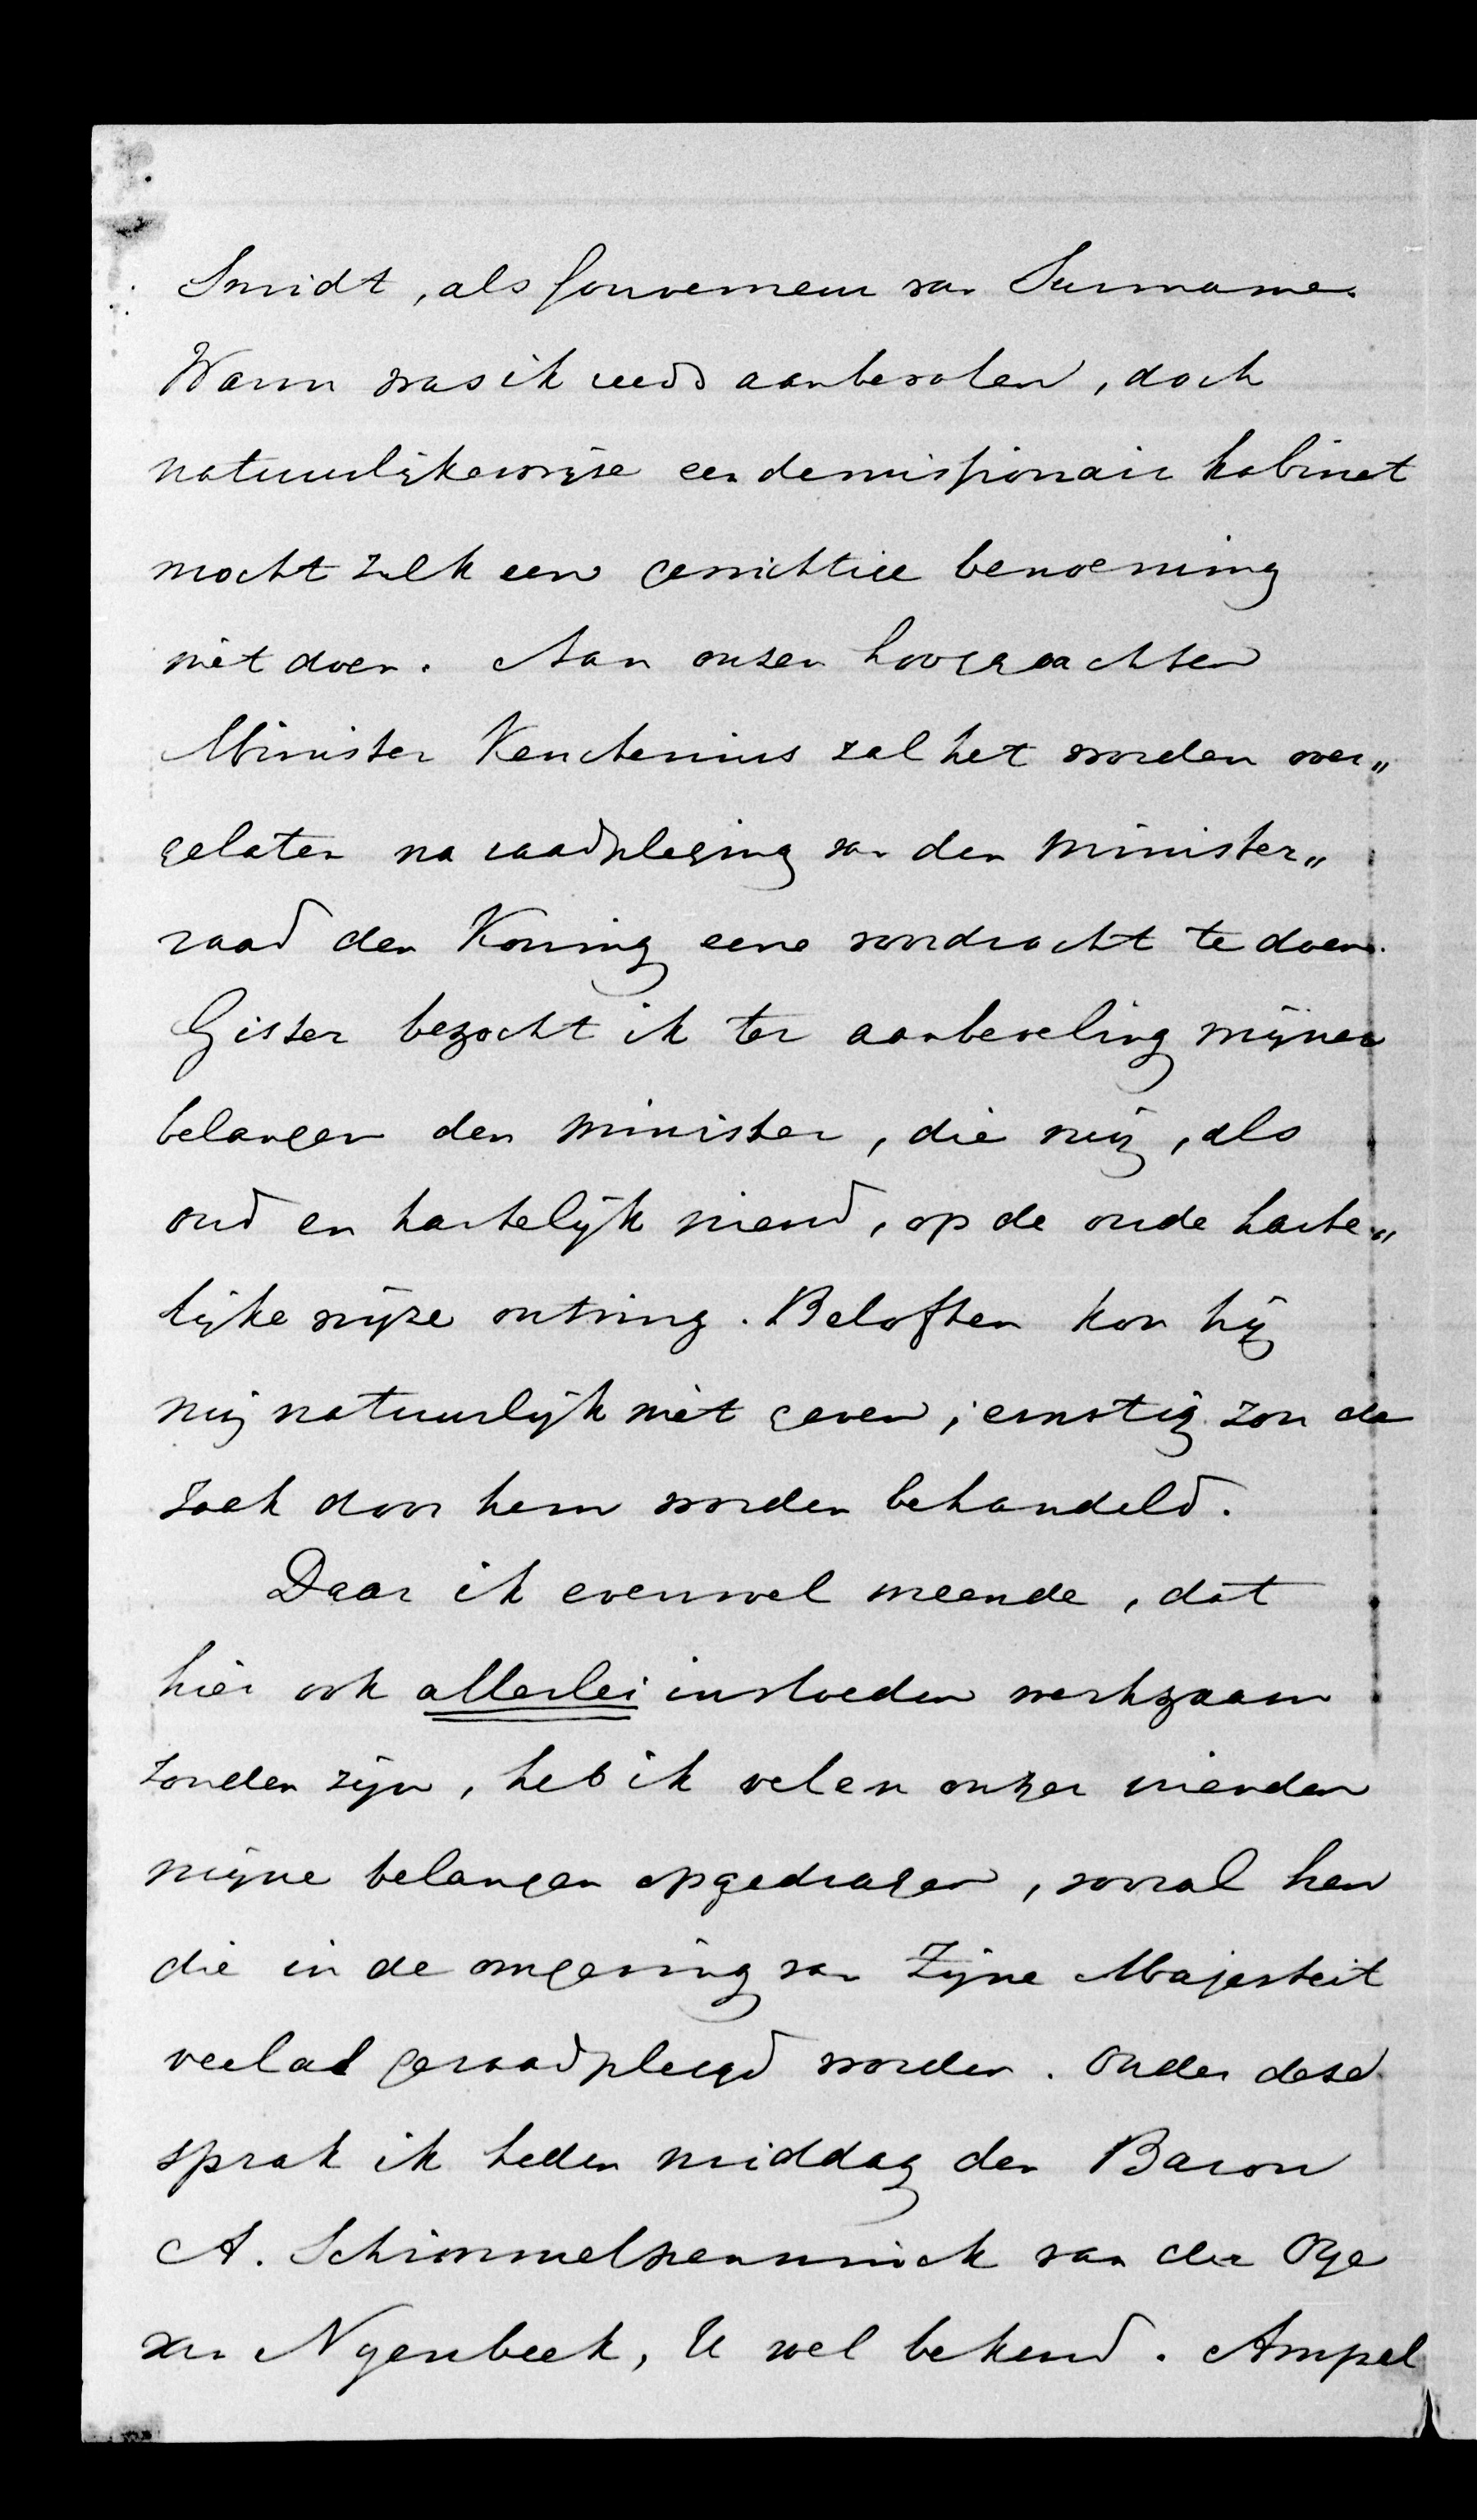 Smidt, als Gouverneur van Suriname.
Warm was ik reeds aanbevolen, doch
natuurlijkerwijze een demissionair kabinet
mocht zulk een gewichtige benoeming
niet doen. Aan onzen hooggeachten
Minister Keuchenius zal het worden over„
gelaten na raadpleging van den minister„
raad den Koning eene voordracht te doen.
Gister bezocht ik ter aanbeveling mijner
belangen den minister, die mij, als
oud en hartelijk vriend, op de oude harte„
lijke wijze ontving. Beloften kon hij
mij natuurlijk niet geven; ernstig zou de
zaak door hem worden behandeld.
Daar ik evenwel meende, dat
hier ook allerlei invloeden werkzaam
zouden zijn, heb ik velen onzer vrienden
mijne belangen opgedragen, vooral hen
die in de omgeving van Zijne Majesteit
veelal geraadpleegd worden. Onder deze
sprak ik heden middag den Baron
A. Schimmelpenninck van der Oye
van Nyenbeek, U wel bekend. Ampel